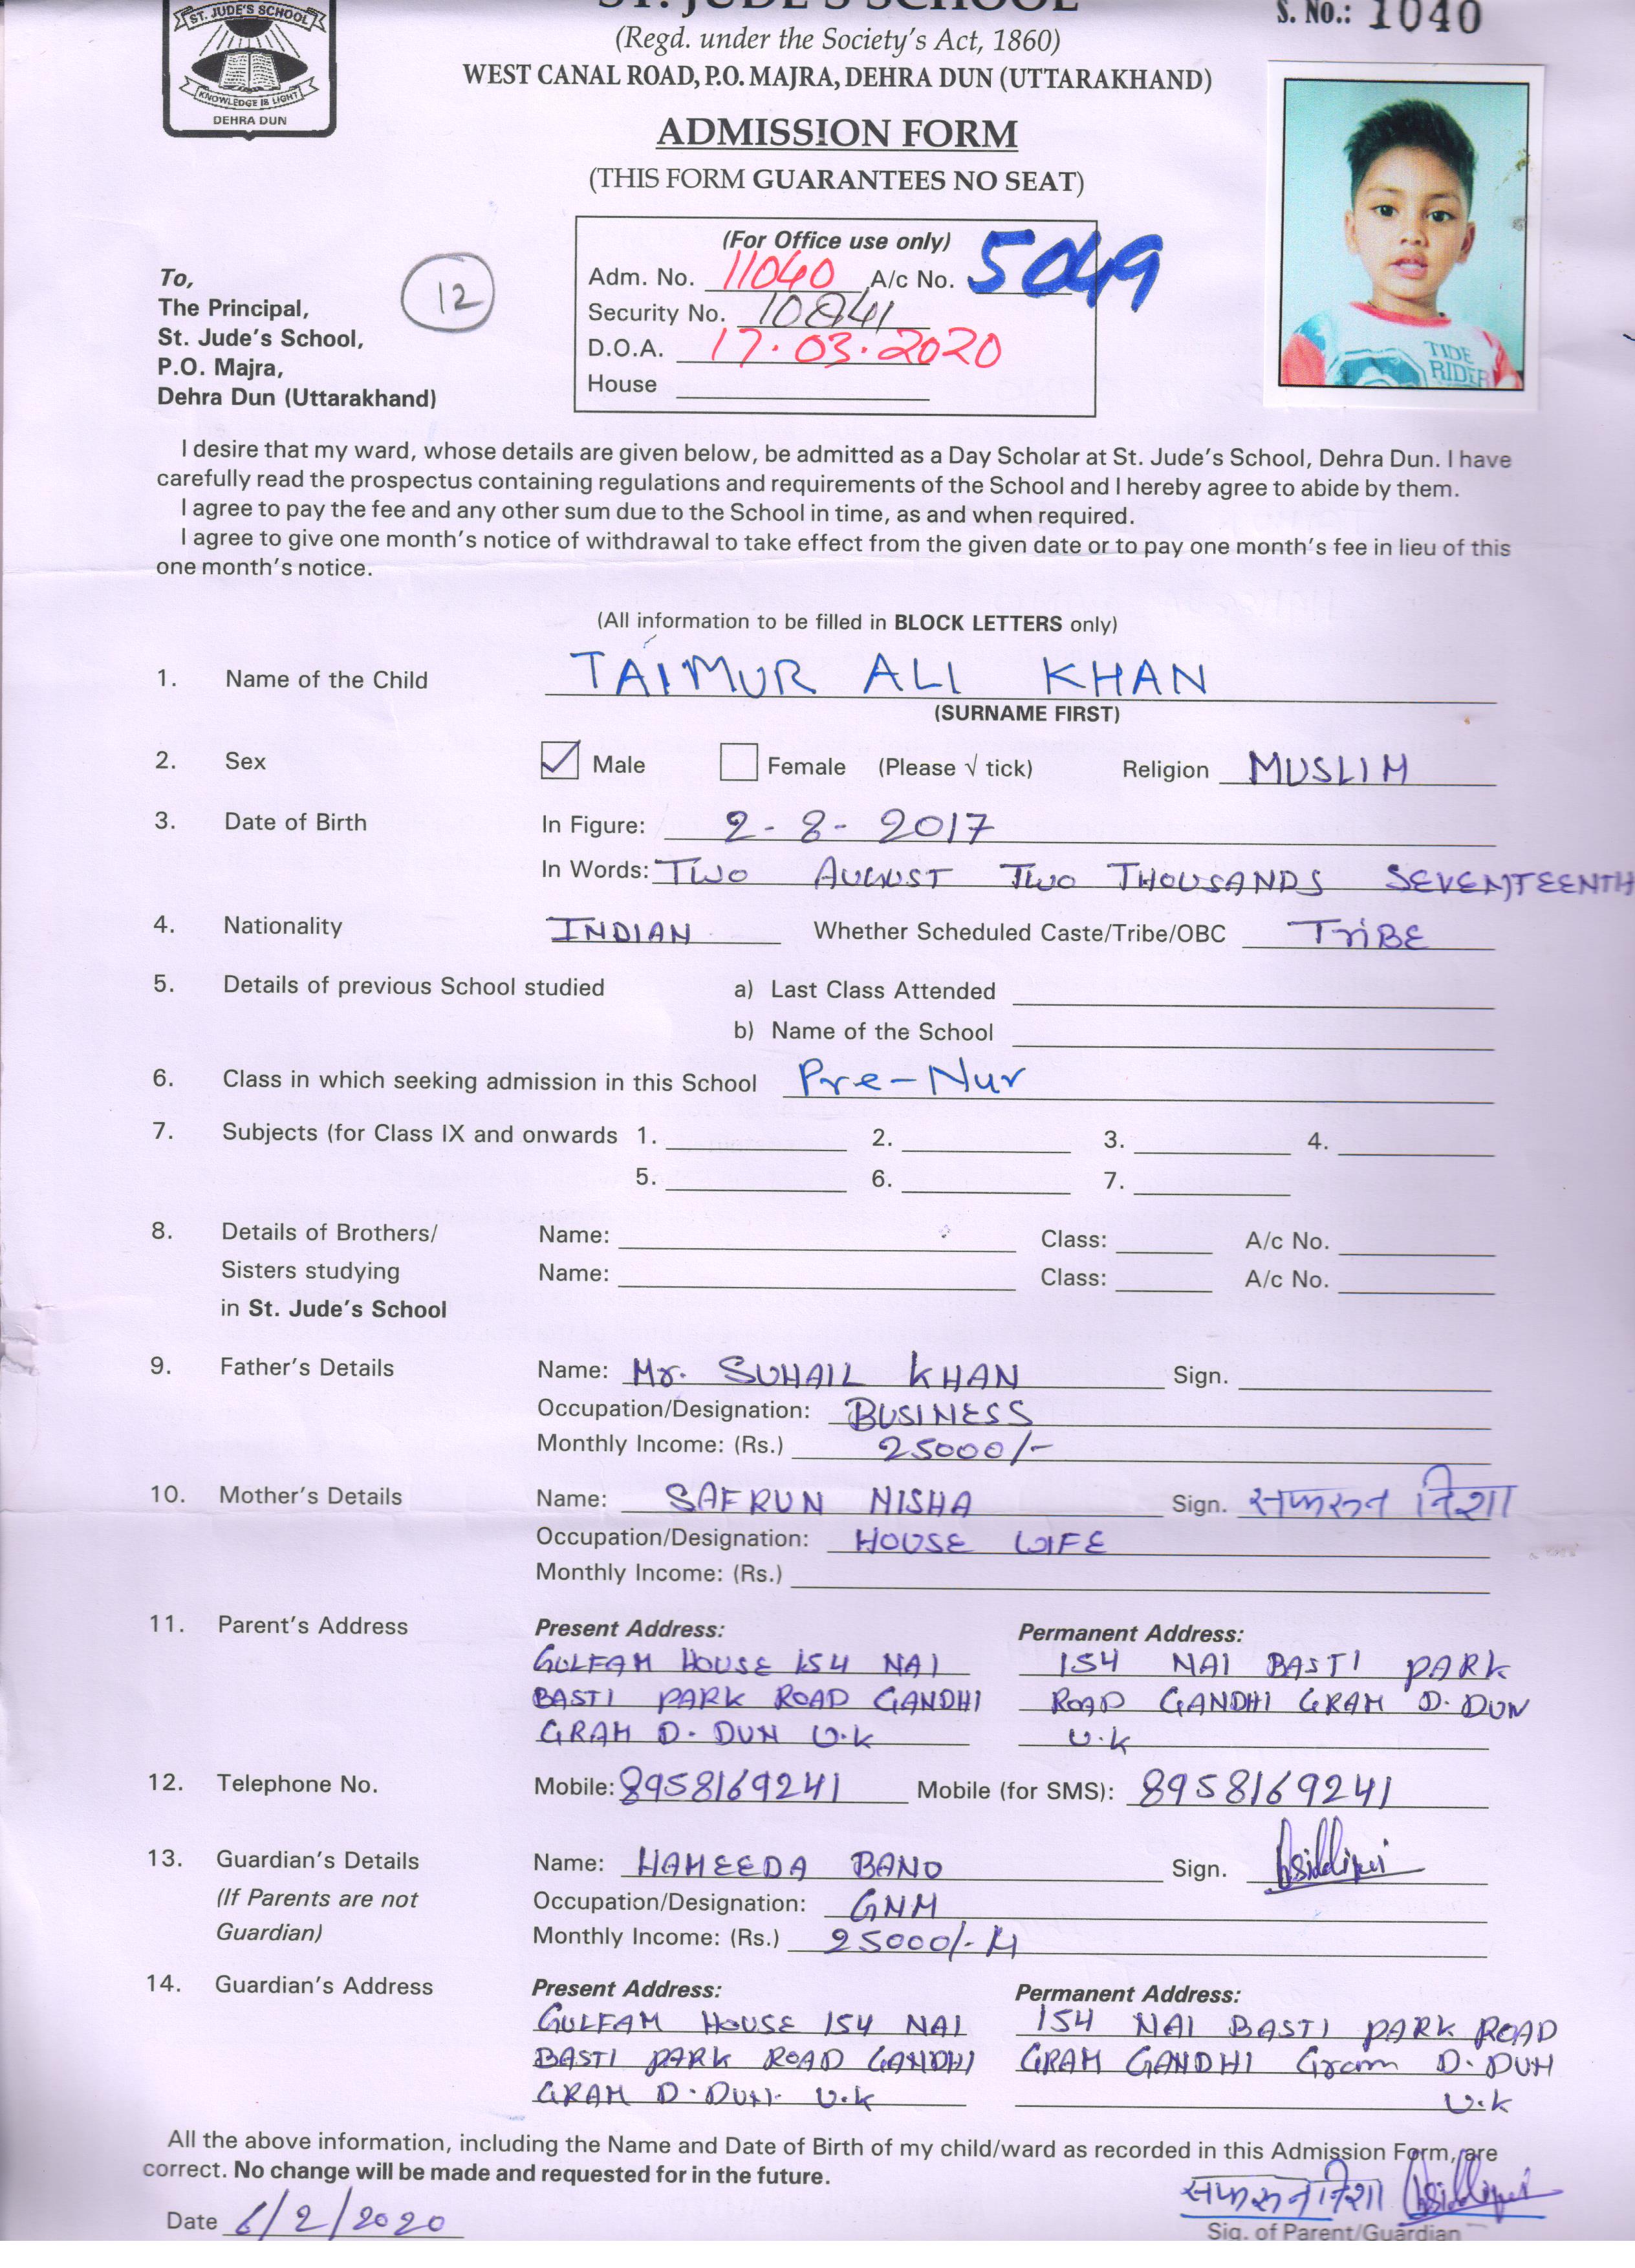 ST. JUDE'S SCHOOL
KNOWLEDGE IS LIGHT
DEHRA DUN
ST. JUDE'S SCHOOL
S. No.: 1040
(Regd. under the Society's Act, 1860)
WEST CANAL ROAD, P.O. MAJRA, DEHRA DUN (UTTARAKHAND)
ADMISSION FORM
(THIS FORM GUARANTEES NO SEAT)
TIDE
RIDER
(For Office use only)
Adm. No. 11040 A/c No. 5049
Security No. 10841
D.O.A. 17.03.2020
House
12
To,
The Principal,
St. Jude's School,
P.O. Majra,
Dehra Dun (Uttarakhand)
I desire that my ward, whose details are given below, be admitted as a Day Scholar at St. Jude's School, Dehra Dun. I have
carefully read the prospectus containing regulations and requirements of the School and I hereby agree to abide by them.
I agree to pay the fee and any other sum due to the School in time, as and when required.
I agree to give one month's notice of withdrawal to take effect from the given date or to pay one month's fee in lieu of this
one month's notice.
(All information to be filled in BLOCK LETTERS only)
1. Name of the Child TAIMUR ALI KHAN
(SURNAME FIRST)
2. Sex Male Female (Please √ tick) Religion MUSLIM
3. Date of Birth In Figure: 2-8-2017
In Words: TWO AUGUST TWO THOUSANDS SEVENTEENTH
4. Nationality INDIAN Whether Scheduled Caste/Tribe/OBC TriBE
5. Details of previous School studied a) Last Class Attended
b) Name of the School
6. Class in which seeking admission in this School Pre-Nur
7. Subjects (for Class IX and onwards 1. 2. 3. 4.
5. 6. 7.
8. Details of Brothers/ Name: Class: A/c No.
Sisters studying Name: Class: A/c No.
in St. Jude's School
9. Father's Details Name: Mr. SUHAIL KHAN Sign.
Occupation/Designation: BUSINESS
Monthly Income: (Rs.) 25000/-
10. Mother's Details Name: SAFRUN NISHA Sign. सफरुन निशा
Occupation/Designation: HOUSE WIFE
Monthly Income: (Rs.)
11. Parent's Address Present Address: Permanent Address:
GULFAM HOUSE 154 NAI 154 NAI BASTI PARK
BASTI PARK ROAD GANDHI ROAD GANDHI GRAM D. DUN
GRAM D. DUN U.K U.K
12. Telephone No. Mobile: 8958169241 Mobile (for SMS): 8958169241
13. Guardian's Details Name: HAMEEDA BANO Sign.
(If Parents are not Occupation/Designation: GNM
Guardian) Monthly Income: (Rs.) 25000/-
14. Guardian's Address Present Address: Permanent Address:
GULFAM HOUSE 154 NAI 154 NAI BASTI PARK ROAD
BASTI PARK ROAD GANDHI GRAM GANDHI Gram D. DUN
GRAM D. DUN. U.K U.K
All the above information, including the Name and Date of Birth of my child/ward as recorded in this Admission Form, are
correct. No change will be made and requested for in the future.
सफरुन निशा
Date 6/2/2020 Sig. of Parent/Guardian